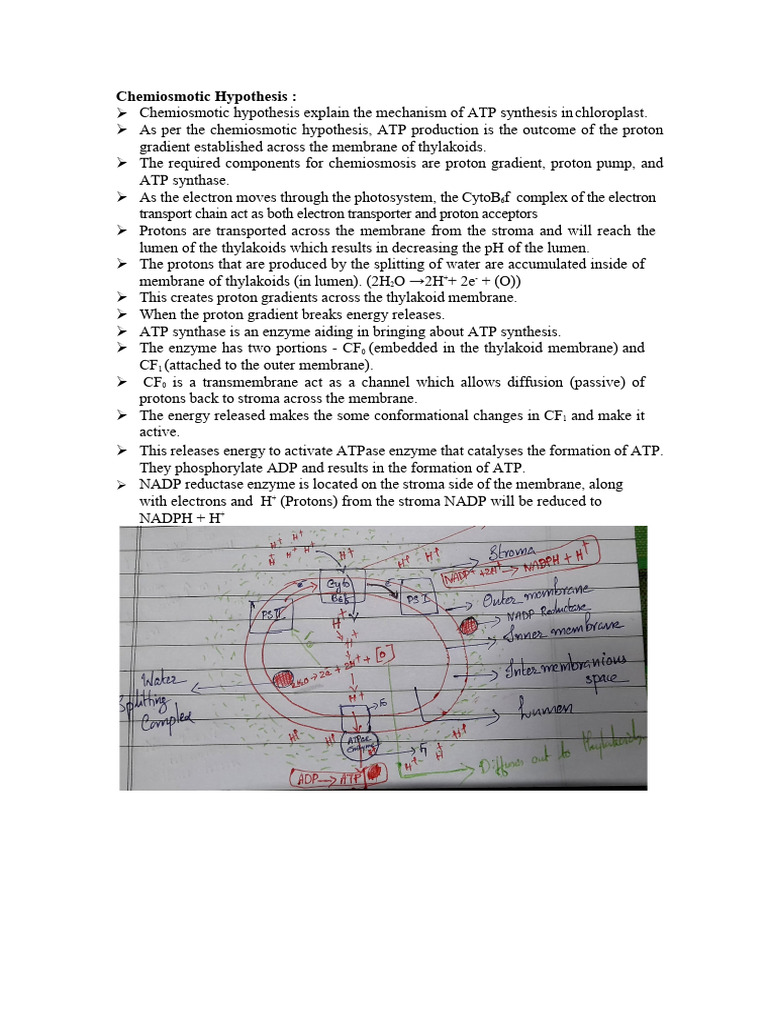 Chemiosmotic Hypothesis :
➢ Chemiosmotic hypothesis explain the mechanism of ATP synthesis in chloroplast.
➢ As per the chemiosmotic hypothesis, ATP production is the outcome of the proton
gradient established across the membrane of thylakoids.
➢ The required components for chemiosmosis are proton gradient, proton pump, and
ATP synthase.
➢ As the electron moves through the photosystem, the CytoB₆f complex of the electron
transport chain act as both electron transporter and proton acceptors
➢ Protons are transported across the membrane from the stroma and will reach the
lumen of the thylakoids which results in decreasing the pH of the lumen.
➢ The protons that are produced by the splitting of water are accumulated inside of
membrane of thylakoids (in lumen). (2H₂O →2H⁺+ 2e⁻ + (O))
➢ This creates proton gradients across the thylakoid membrane.
➢ When the proton gradient breaks energy releases.
➢ ATP synthase is an enzyme aiding in bringing about ATP synthesis.
➢ The enzyme has two portions - CF₀ (embedded in the thylakoid membrane) and
CF₁ (attached to the outer membrane).
➢ CF₀ is a transmembrane act as a channel which allows diffusion (passive) of
protons back to stroma across the membrane.
➢ The energy released makes the some conformational changes in CF₁ and make it
active.
➢ This releases energy to activate ATPase enzyme that catalyses the formation of ATP.
They phosphorylate ADP and results in the formation of ATP.
➢ NADP reductase enzyme is located on the stroma side of the membrane, along
with electrons and H⁺ (Protons) from the stroma NADP will be reduced to
NADPH + H⁺
H⁺ H⁺
H⁺ H⁺ H⁺ H⁺ H⁺ H⁺ H⁺
Stroma
NADP⁺ +2H⁺ → NADPH + H⁺
Cyto
B6f
e⁻
PS II
PS I
Outer membrane
NADP Reductase
Inner membrane
H⁺
H⁺
2H2O → 2e + 2H⁺ + [O]
Water
Splitting
Complex
Inter membranious
space
H⁺
F0
Lumen
H⁺ H⁺
ATPase
Enzyme
F1
H⁺ H⁺ H⁺
ADP → ATP
Diffuses out to thylakoids